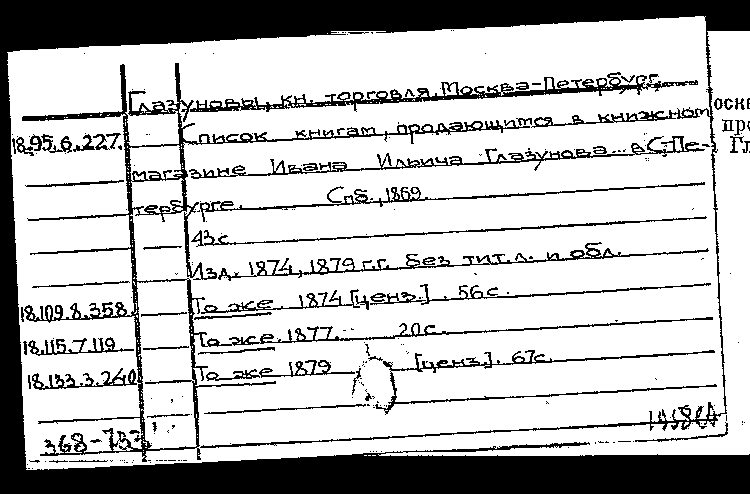 Глазуновы, кн. торговля, Москва-Петербург.
18.95.6.227. Список книгам, продающимся в книжном
магазине Ивана Ильича Глазунова... в С.-Пе-
тербурге. Спб., 1869.
43 с.
Изд. 1874, 1879 г.г. без тит. л. и обл.
18.109.8.358. То же. 1874 [ценз.]. 56 с.
18.115.7.119 То же. 1877. 20 с.
18.133.3.240 То же 1879 [ценз.]. 67 с.
368-783